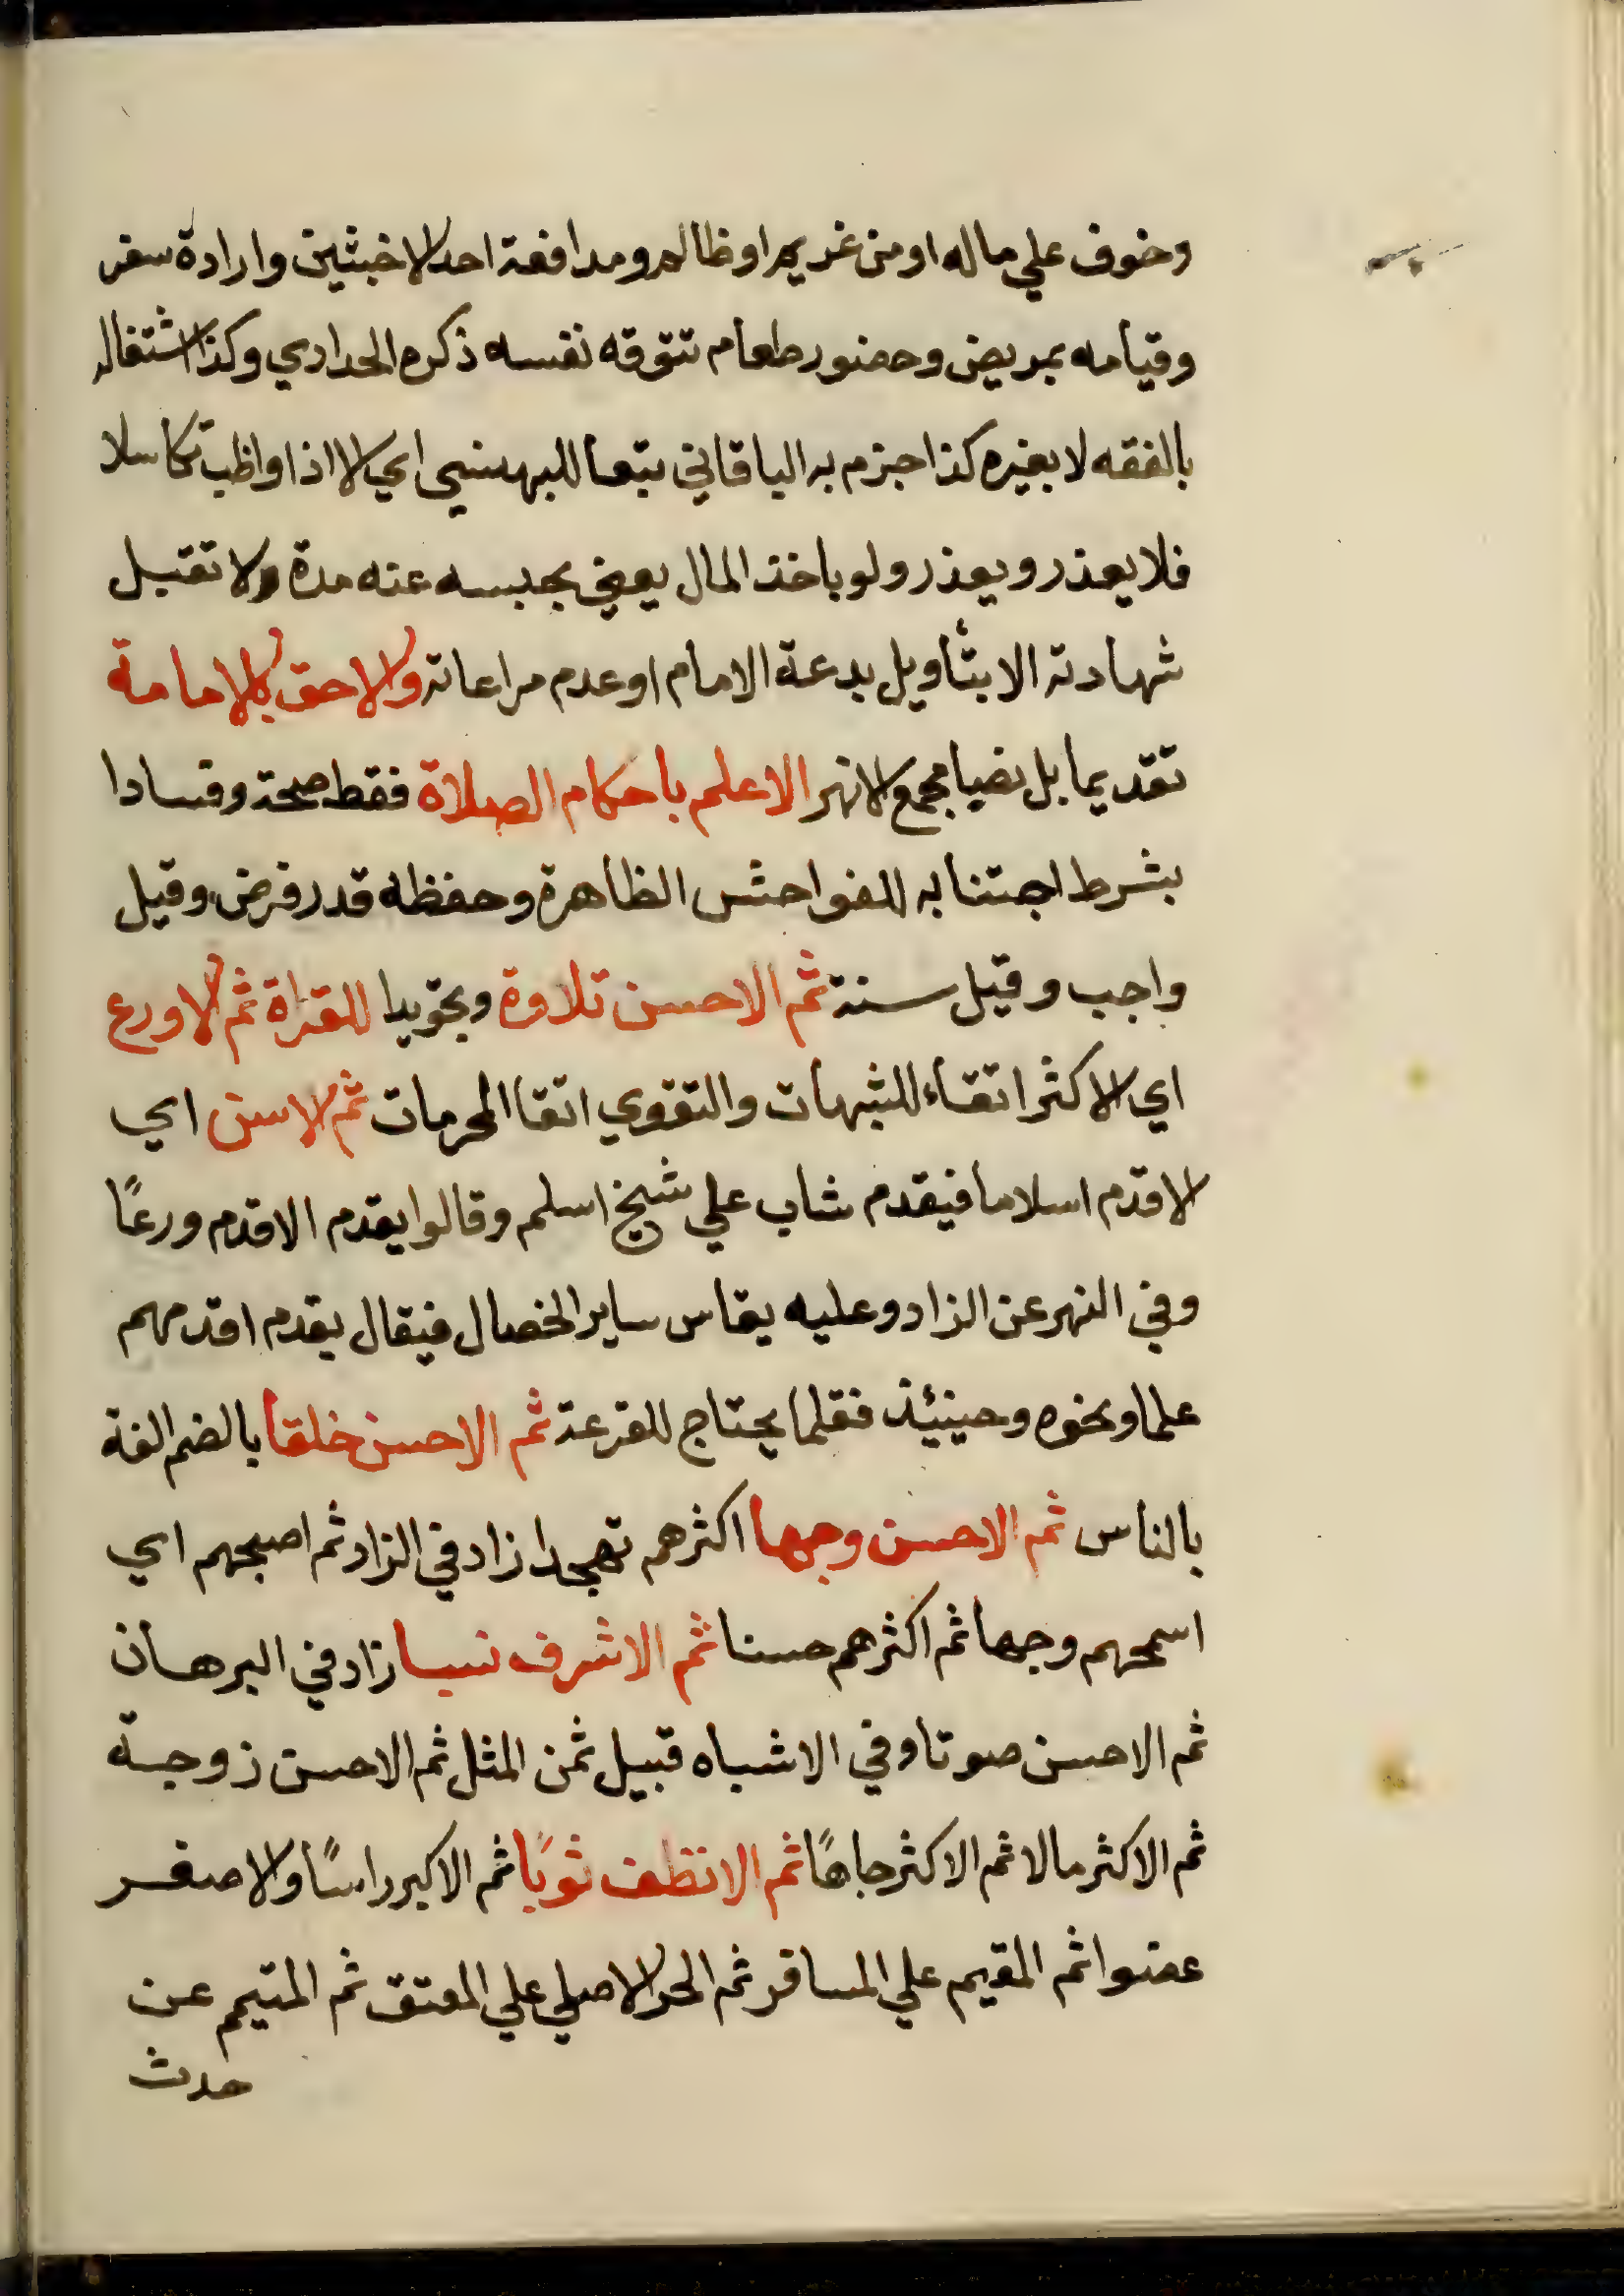 وخوف علي ماله او من غريم او ظالم ومدافعة احد الاخبثين وارادة سفر
وقيامه بمريض وحضور طعام تتوقه نفسه ذكره الحدادي وكذا اشتغاله
بالفقه لا بغيره كذا جزم به الباقاني تبعا للبهنسي اي الا اذا واظب تكاسلا
فلا يعذر ويعذر ولو باخذ المال يعني بحبسه عنه مدة ولا تقبل
شهادته الا بتأويل بدعة الامام او عدم مراعاته والاحق بالامامة
تقديما بل نصبا مجمع الانهر الاعلم باحكام الصلاة فقط صحة وفسادا
بشرط اجتنابه للفواحش الظاهرة وحفظه قدر فرض وقيل
واجب وقيل سنة ثم الاحسن تلاوة وتجويدا للقراة ثم الاورع
اي الاكثر اتقاء للشبهات والتقوي اتقا المحرمات ثم الاسن اي
الاقدم اسلاما فيقدم شاب علي شيخ اسلم وقالوا يقدم الاقدم ورعًا
وفي النهر عن الزاد وعليه يقاس ساير الخصال فيقال يقدم اقدمهم
علما ونحوه وحينئذ فقلما يحتاج للقرعة ثم الاحسن خلقا بالضم الفة
بالناس ثم الاحسن وجها اكثرهم تهجدا زاد في الزاد ثم اصبحهم اي
اسمحهم وجها ثم اكثرهم حسنا ثم الاشرف نسبا زاد في البرهان
ثم الاحسن صوتا وفي الاشباه قبيل ثمن المثل ثم الاحسن زوجة
ثم الاكثر مالا ثم الاكثر جاهًا ثم الانظف ثوبًا ثم الاكبر راسًا والاصغر
عضوا ثم المقيم علي المسافر ثم الحر الاصلي علي المعتق ثم المتيمم عن
حدث